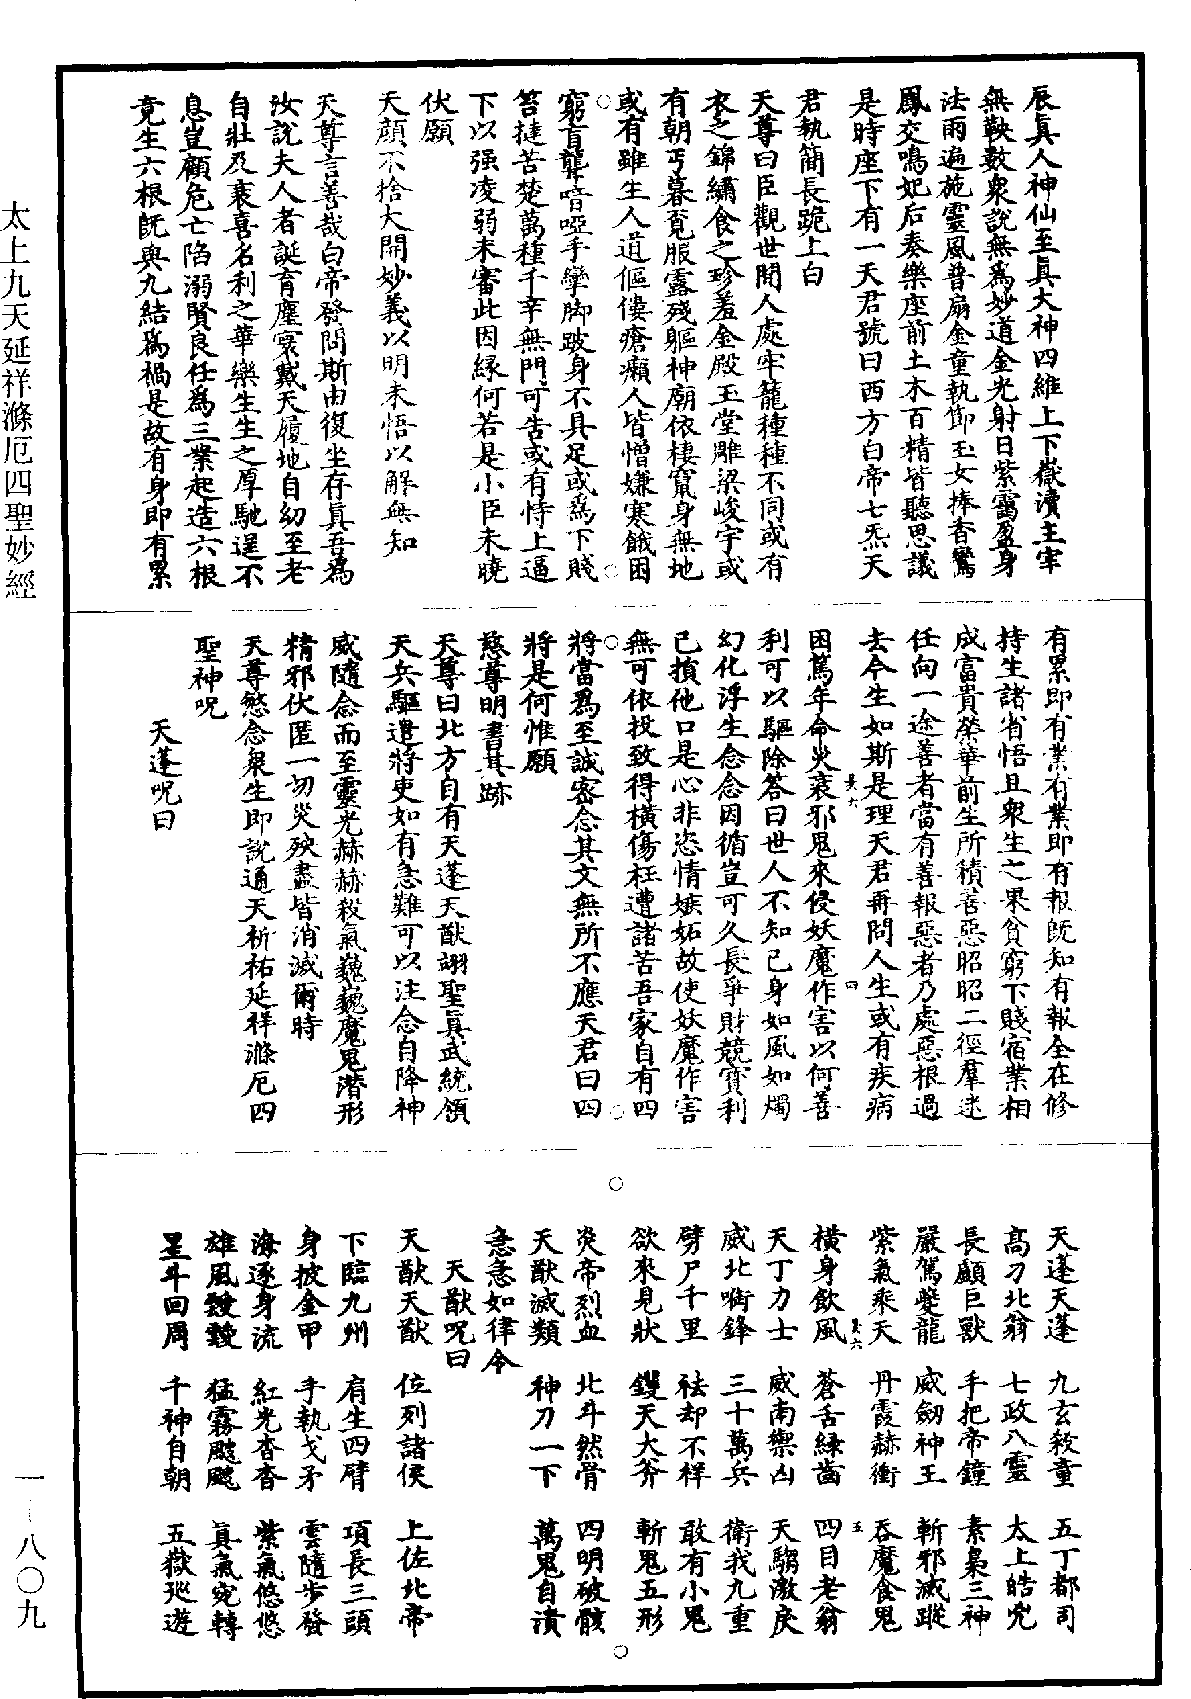 太上九天延祥滌厄四聖妙經
辰真人神仙至真大神四維上下嶽瀆主宰
無鞅數衆說無爲妙道金光射日紫靄盈身
法雨遍施靈風普扇金童執節玉女捧香鸞
鳳交鳴妃后奏樂座前土木百精皆聽思議
是時座下有一天君號曰西方白帝七炁天
君執簡長跪上白
天尊曰臣觀世間人處牢籠種種不同或有
衣之錦繡食之珍羞金殿玉堂雕梁峻宇或
有朝丐暮覓服露殘軀神廟依棲竄身無地
或有雖生人道傴僂瘡癩人皆憎嫌寒餓困
窮盲聾喑啞手攣脚跛身不具足或爲下賤
笞撻苦楚萬種千辛無門可告或有恃上逼
下以强凌弱未審此因緣何若是小臣未曉
伏願
天顔不捨大開妙義以明未悟以解無知
天尊言善哉白帝發問斯由復坐存真吾爲
汝說夫人者誕育塵寰戴天履地自幼至老
自壯及衰喜名利之華樂生生之厚馳逞不
息豈顧危亡陷溺賢良任爲三業起造六根
竟生六根既與九結爲禍是故有身即有累
有累即有業有業即有報既知有報全在修
持生諸省悟且衆生之果貧窮下賤宿業相
成富貴榮華前生所積善惡昭昭二徑羣迷
任向一途善者當有善報惡者乃處惡根過
去今生如斯是理天君再問人生或有疾病
困篤年命災衰邪鬼來侵妖魔作害以何善
利可以驅除答曰世人不知己身如風如燭
幻化浮生念念因循豈可久長爭財競寶利
己損他口是心非恣情嫉妬故使妖魔作害
無可依投致得橫傷枉遭諸苦吾家自有四
將當爲至誠密念其文無所不應天君曰四
將是何惟願
慈尊明書其跡
天尊曰北方自有天蓬天猷翊聖真武統領
天兵驅遣將吏如有急難可以注念自降神
威隨念而至靈光赫赫殺氣巍巍魔鬼潛形
精邪伏匿一切災殃盡皆消滅爾時
天尊愍念衆生即說通天祈祐延祥滌厄四
聖神呪
天蓬呪曰
天蓬天蓬 九玄殺童 五丁都司
高刀北翁 七政八靈 太上皓兇
長顱巨獸 手把帝鐘 素梟三神
嚴駕夔龍 威劒神王 斬邪滅蹤
紫氣乘天 丹霞赫衝 吞魔食鬼
橫身飲風 蒼舌綠齒 四目老翁
天丁力士 威南禦凶 天騶激戾
威北啣鋒 三十萬兵 衛我九重
劈尸千里 祛却不祥 敢有小鬼
欲來見狀 钁天大斧 斬鬼五形
炎帝烈血 北斗然骨 四明破骸
天猷滅類 神刀一下 萬鬼自潰
急急如律令
天猷呪曰
天猷天猷 位列諸侯 上佐北帝
下臨九州 肩生四臂 項長三頭
身披金甲 手執戈矛 雲隨步發
海逐身流 紅光杳杳 紫氣悠悠
雄風䬃䬃 猛霧颼颼 真氣宛轉
星斗回周 千神自朝 五嶽巡遊
一―八〇九